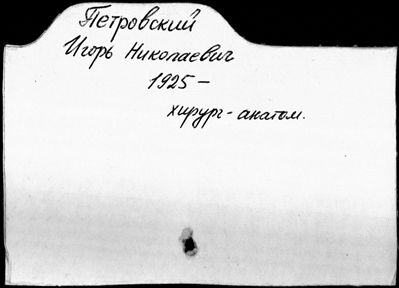 Петровский
Игорь Николаевич
1925 –
хирург-анатом.